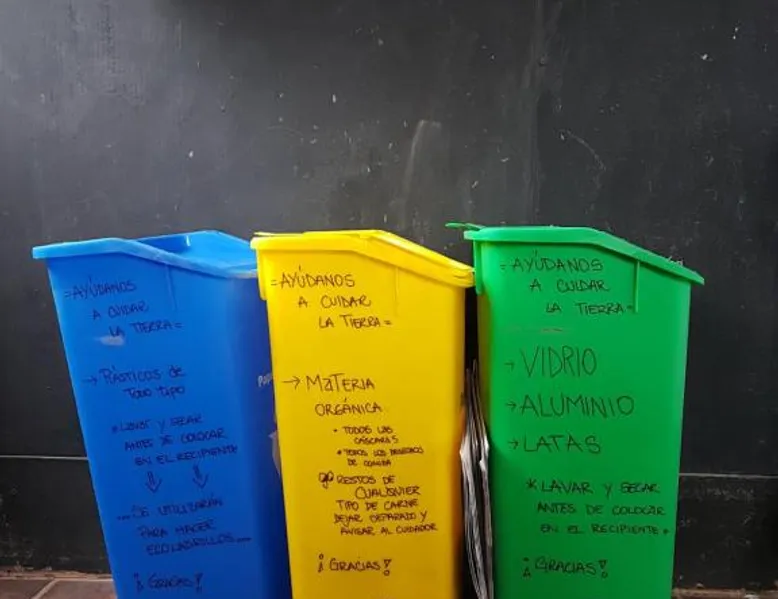 =AYÚDANOS
A CUIDAR
LA TIERRA=
→ PLÁSTICOS DE
TODO TIPO
*LAVAR Y SECAR
ANTES DE COLOCAR
EN EL RECIPIENTE
...SE UTILIZARÁN
PARA HACER
ECOLADRILLOS...
¡GRACIAS!
=AYÚDANOS
A CUIDAR
LA TIERRA=
→ MATERIA
ORGÁNICA
• TODOS LAS
CÁSCARAS
• TODOS LOS
DE COMIDA
RESTOS DE
CUALQUIER
TIPO DE CARNE
DEJAR SEPARADO Y
AVISAR AL CUIDADOR
¡GRACIAS!
=AYÚDANOS
A CUIDAR
LA TIERRA=
→ VIDRIO
→ ALUMINIO
→ LATAS
*LAVAR Y SECAR
ANTES DE COLOCAR
EN EL RECIPIENTE*
¡GRACIAS!